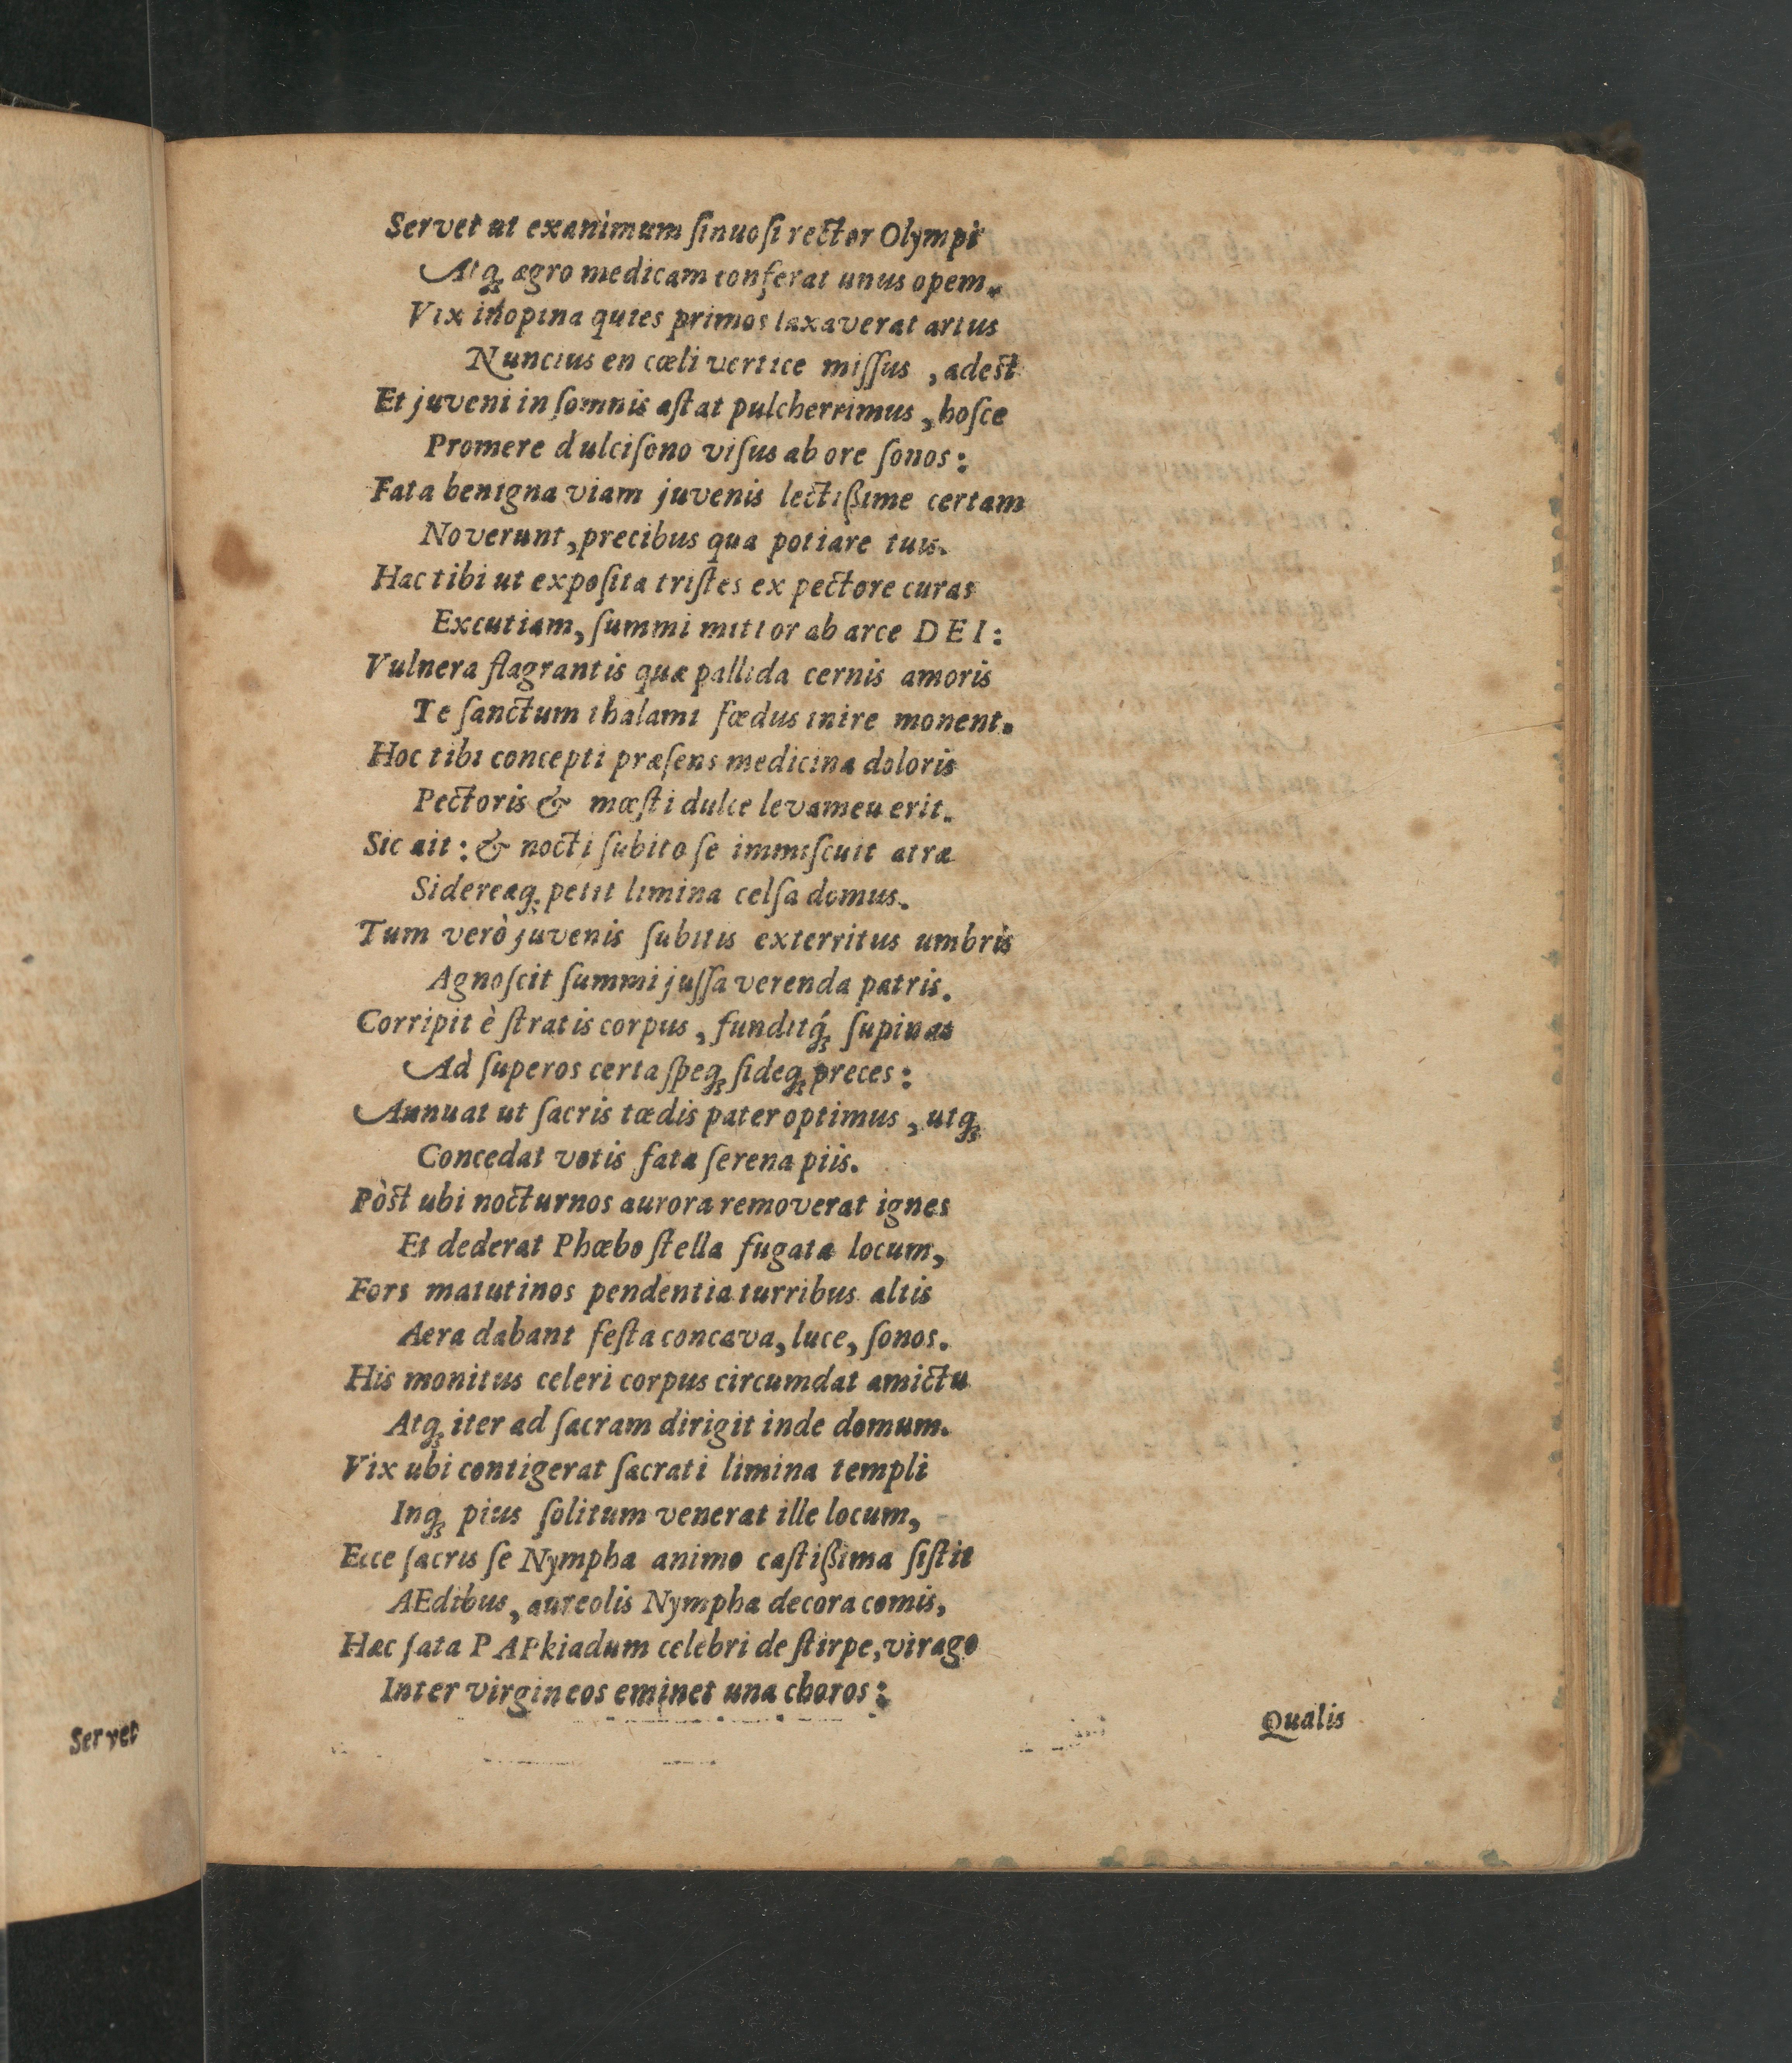 Servet ut exanimum ſinuoſi rector Olympi
Atq; ægro medicam conferat unus opem.
Vix inopina quies primos laxaverat artus
Nuncius en cœli vertice miſſus, adeſt
Et juveni in ſomnis aſtat pulcherrimus, hoſce
Promere dulciſono viſus ab ore ſonos:
Fata benigna viam juvenis lectißime certam
Noverunt, precibus qua potiare tuis.
Hac tibi ut expoſita triſtes ex pectore curas
Excutiam, ſummi mittor ab arce DEI:
Vulnera flagrantis quæ pallida cernis amoris
Te ſanctum thalami fœdus inire monent.
Hoc tibi concepti præſens medicina doloris
Pectoris & mœſti dulce levameu erit.
Sic ait: & nocti ſubito ſe immiſcuit atræ
Sidereaq; petit limina celſa domus.
Tum verò juvenis ſubitis exterritus umbris
Agnoſcit ſummi juſſa verenda patris.
Corripit è ſtratis corpus, funditq́; ſupinas
Ad ſuperos certa ſpeq; fideq; preces:
Annuat ut ſacris tœdis pater optimus, utq;
Concedat votis fata ſerena piis.
Pòſt ubi nocturnos aurora removerat ignes
Et dederat Phœbo ſtella fugata locum,
Fors matutinos pendentia turribus altis
Aera dabant feſta concava, luce, ſonos.
His monitus celeri corpus circumdat amictu
Atq; iter ad ſacram dirigit inde domum.
Vix ubi contigerat ſacrati limina templi
Inq; pius ſolitum venerat ille locum,
Ecce ſacris ſe Nympha animo caſtißima ſiſtit
AEdibus, aureolis Nympha decora comis,
Hæc ſata PAPkiadum celebri de ſtirpe, virago
Inter virgineos eminet una choros:
Qualis
Servet